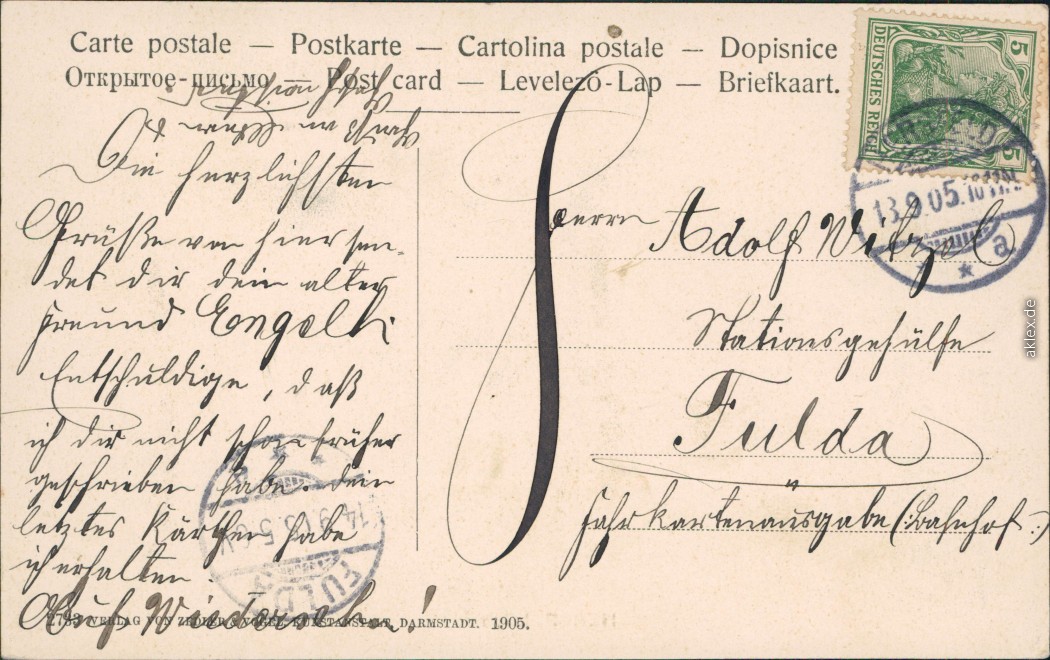 Carte postale — Postkarte — Cartolina postale — Dopisnice
Открытое-письмо — Post card — Levelező-Lap — Briefkaart.
DEUTSCHES REICH
5
5
13.9.05.10
a
Die herzlichsten
Grüße von hier sen-
det dir dein alter
Freund Engelh
Entschuldige, daß
ich dir nicht schon früher
geschrieben habe. Dein
letztes Kärtchen habe
ich erhalten.
Auf Wiedersehn!
Herrn Adolf Witzel
Stationsgehülfe
Fulda
Fahrkartenausgabe (:Bahnhof:)
14.9.05.5-6
FULDA
VERLAG VON ZEDLER & VOGEL, KUNSTANSTALT, DARMSTADT. 1905.
aklex.de